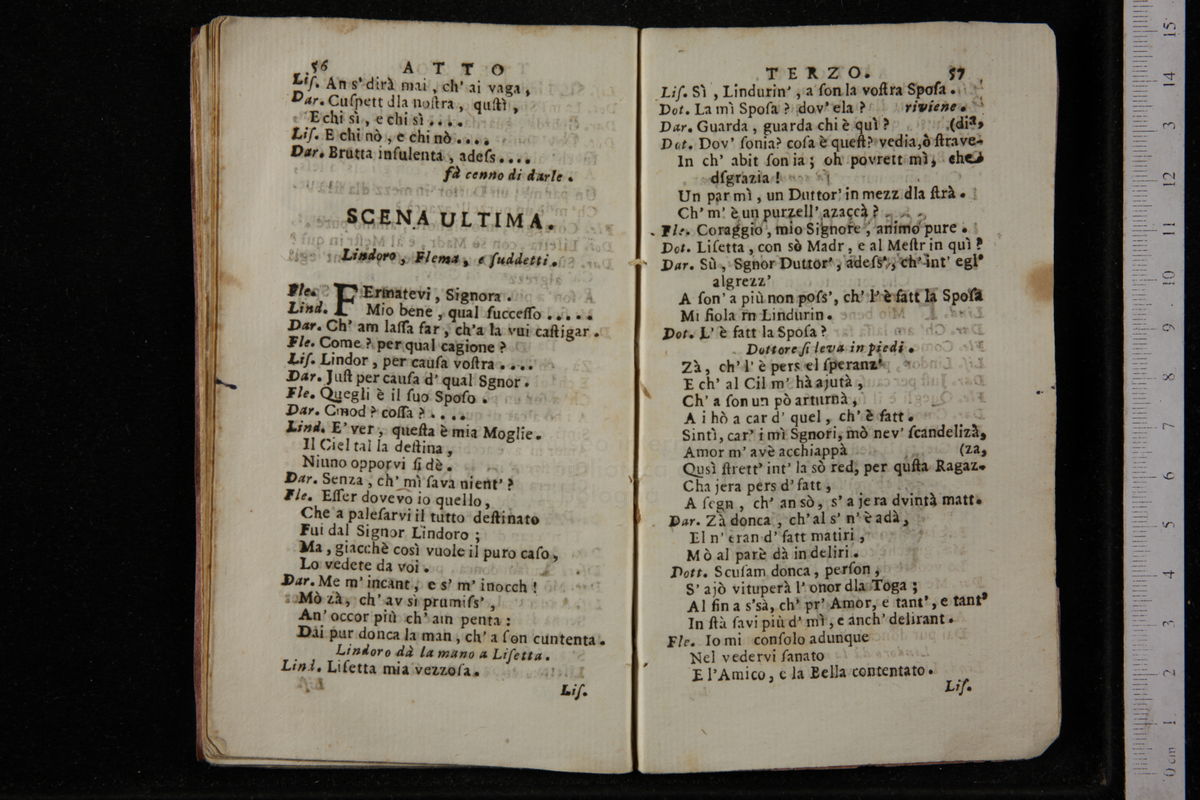 56 ATTO
Liſ. An s' dirà mai, ch' ai vaga,
Dar. Cuſpett dla noſtra, quſtì,
E chi sì, e chi sì ....
Liſ. E chi nò, e chi nò ....
Dar. Brutta inſulenta, adeſs ....
fà cenno di darle.
SCENA ULTIMA.
Lindoro, Flema, e ſuddetti.
Fle. FErmatevi, Signora.
Lind. Mio bene, qual ſucceſſo .....
Dar. Ch' am laſſa far, ch'a la vui caſtigar.
Fle. Come? per qual cagione?
Liſ. Lindor, per cauſa voſtra ....
Dar. Juſt per cauſa d' qual Sgnor.
Fle. Quegli è il ſuo Spoſo.
Dar. Cmod? coſſa? ....
Lind. E' ver, queſta è mia Moglie.
Il Ciel tal la deſtina,
Niuno opporvi ſi dè.
Dar. Senza, ch' mì ſava nient'?
Fle. Eſſer dovevo io quello,
Che a paleſarvi il tutto deſtinato
Fui dal Signor Lindoro;
Ma, giacchè così vuole il puro caſo,
Lo vedete da voi.
Dar. Me m' incant, e s' m' inocch!
Mò zà, ch' av si prumiſs',
An' occor più ch' am penta:
Dai pur donca la man, ch' a ſon cuntenta.
Lindoro dà la mano a Liſetta.
Lind. Liſetta mia vezzoſa.
Liſ.
TERZO. 57
Liſ. Sì, Lindurin', a ſon la voſtra Spoſa.
Dot. La mì Spoſa? dov' ela? riviene.
Dar. Guarda, guarda chi è quì? (dia,
Dot. Dov' ſonia? coſa è queſt? vedia, ò ſtrave-
In ch' abit ſon ia; oh povrett mì, che
dſgrazia!
Un par mì, un Duttor' in mezz dla ſtrà.
Ch' m' è un purzell' azaccà?
Fle. Coraggio, mio Signore, animo pure.
Dot. Liſetta, con sò Madr, e al Meſtr in quì?
Dar. Sù, Sgnor Duttor', adeſs', ch' int' egl'
algrezz'
A ſon' a più non poſs', ch' l' è fatt la Spoſa
Mi fiola rn Lindurin.
Dot. L' è fatt la Spoſa?
Dottore ſi leva in piedi.
Zà, ch' l' è pers el ſperanz'
E ch' al Cil m' hà ajutà,
Ch' a ſon un pò arturnà,
A i hò a car d' quel, ch' è fatt.
Sintì, car' i mì Sgnori, mò nev' ſcandelizà,
Amor m' avè acchiappà (za,
Qusì ſtrett' int' la sò red, per quſta Ragaz-
Cha jera pers d' fatt,
A ſegn, ch' an sò, s' a jera dvintà matt.
Dar. Zà donca, ch' al s' n' è adà,
El n' eran d' fatt matiri,
Mò al parè dà in deliri.
Dott. Scuſam donca, perſon,
S' ajò vituperà l' onor dla Toga;
Al fin a s'sà, ch' pr' Amor, e tant', e tant'
In ſtà ſavi più d' mì, e anch' delirant.
Fle. Io mi conſolo adunque
Nel vedervi ſanato
E l'Amico, e la Bella contentato.
Liſ.
15
14
13
12
11
10
9
8
7
6
5
4
3
2
1
0 cm